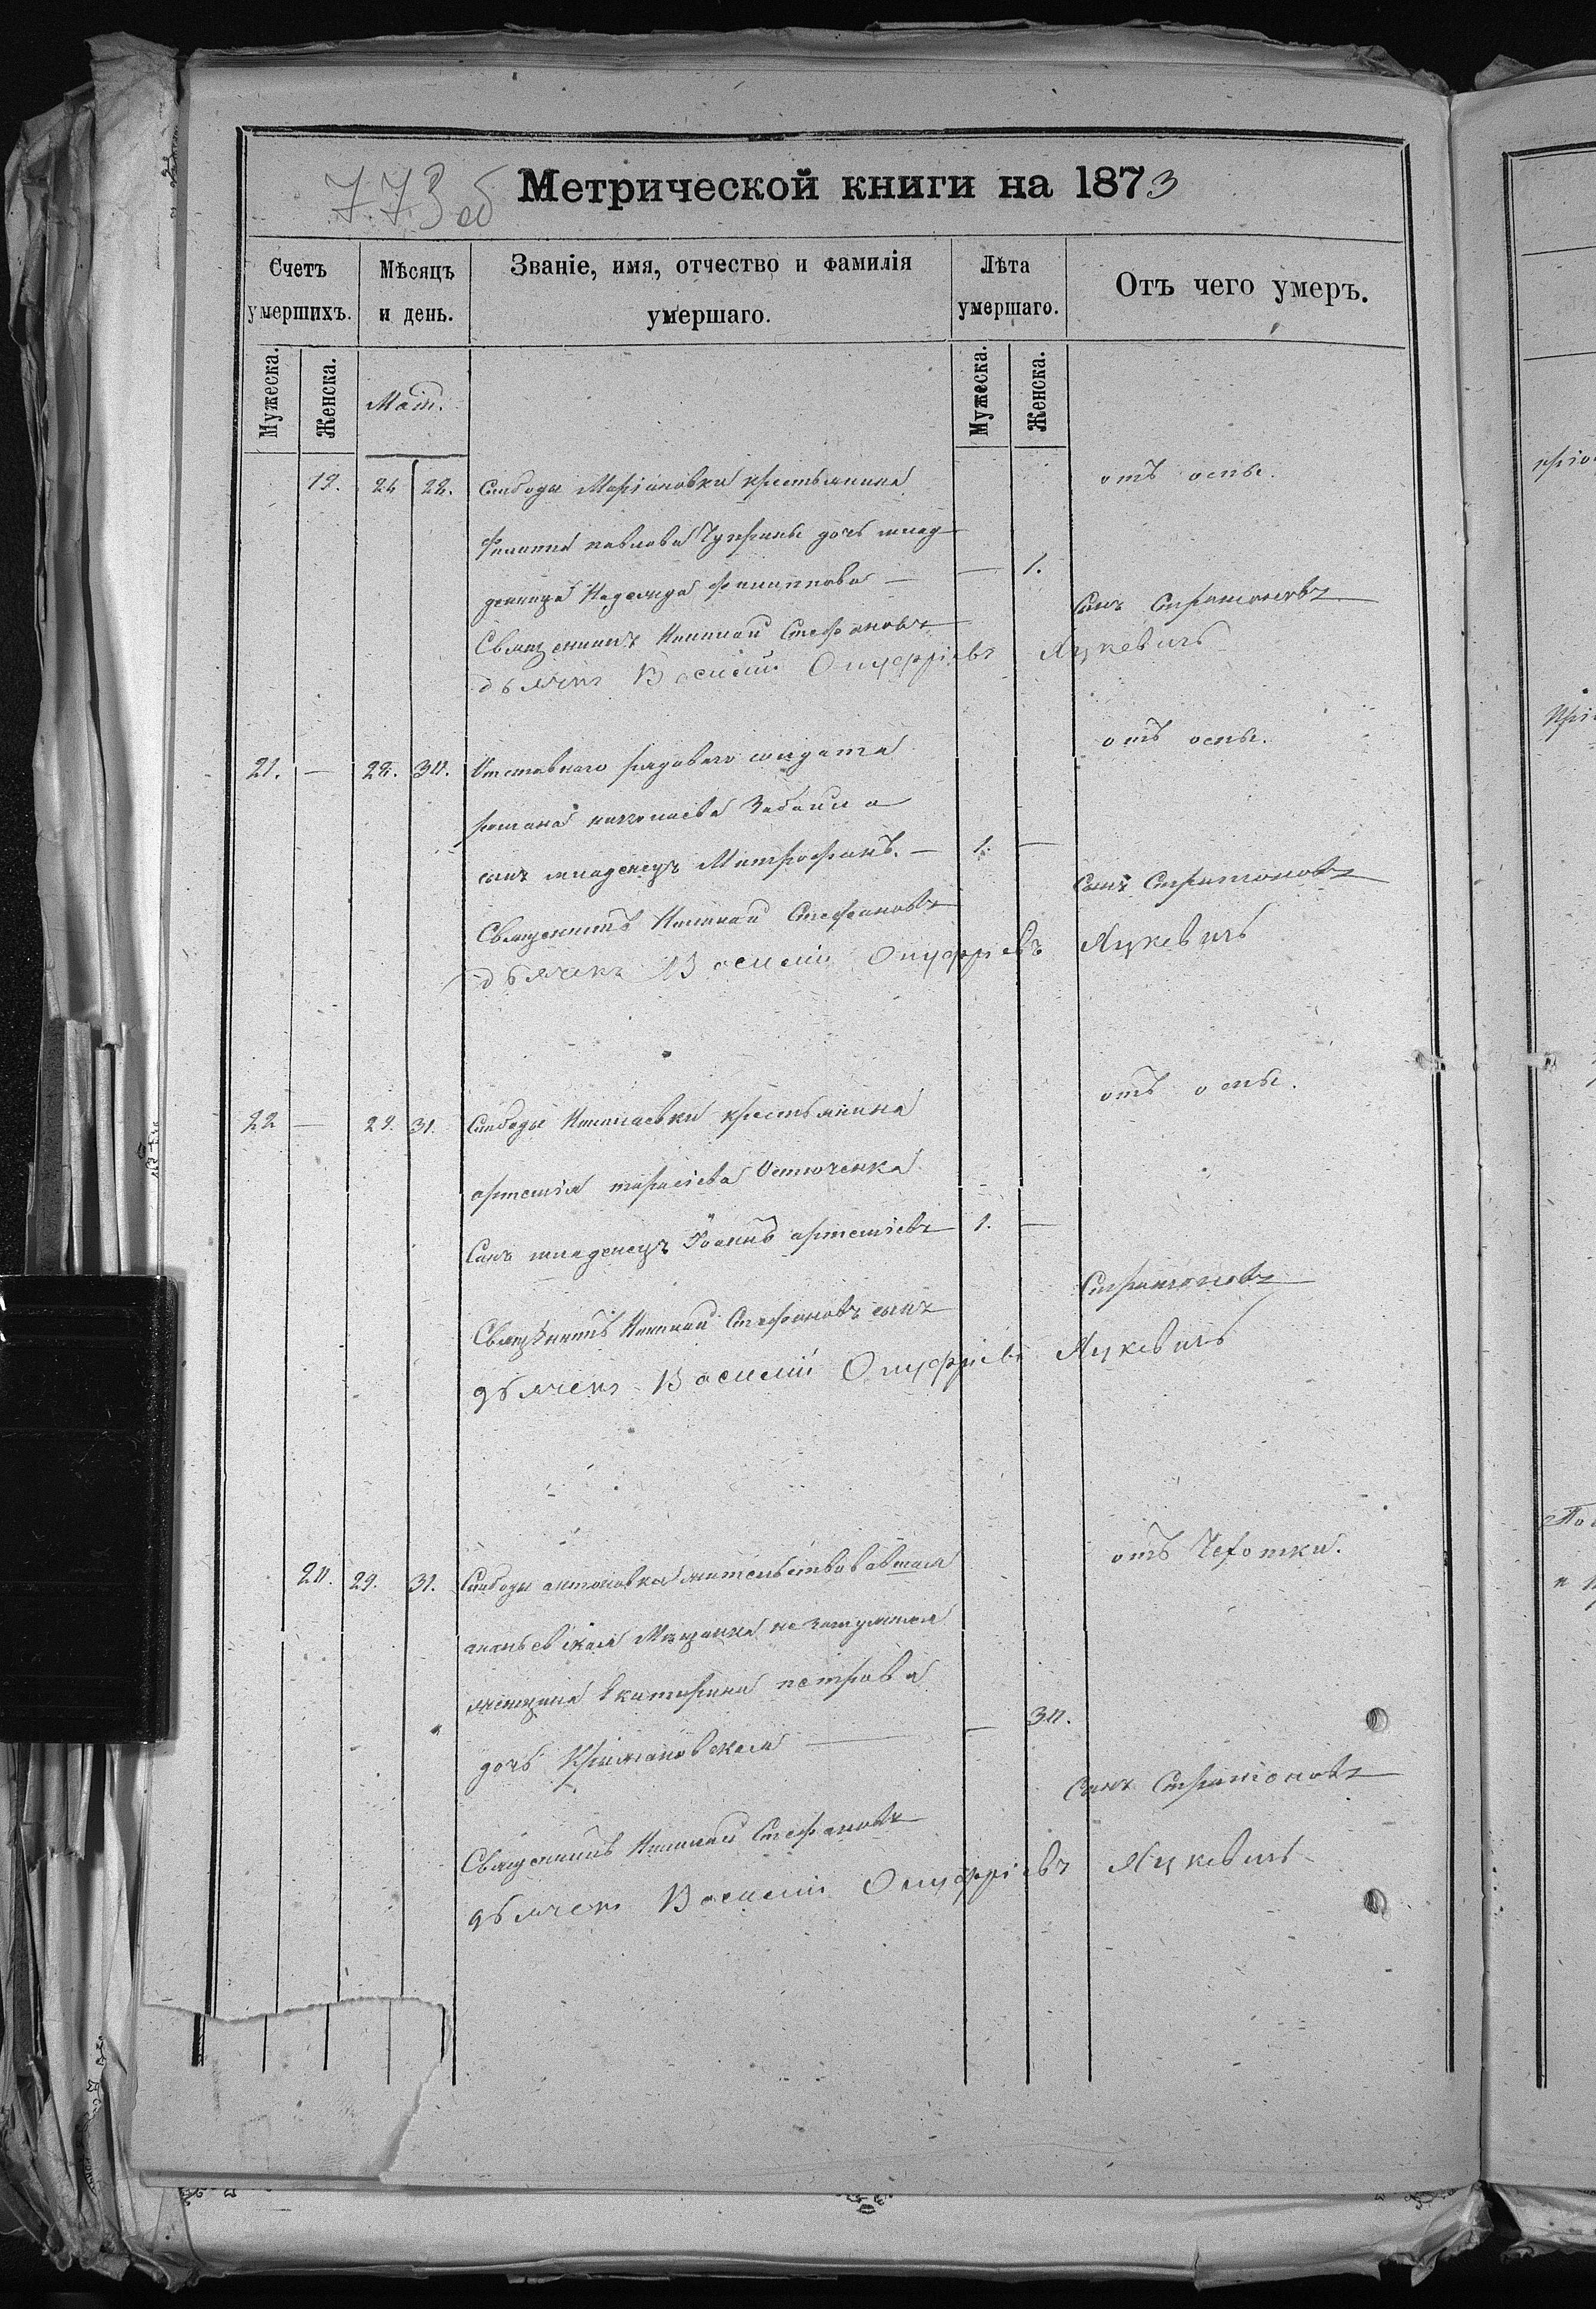 773 об Метрической книги на 1873
Счетъ умершихъ. Мѣсяцъ и день. Званіе, имя, отчество и фамилія умершаго. Лѣта умершаго. Отъ чего умеръ.
Мужеска. Женска. Маій. Мужеска. Женска.
19. 26 28. Слободы Маріановки крестьянина отъ оспы.
Филиппа павлова Чуприны дочь млад-
деница Надежда филиппова — — 1.
Священникъ Николай Стефановъ Сынъ Стратоновъ
дьячекъ Василій Онуфріевъ Яцкевичъ
21. — 28. 30. Отставнаго рядоваго солдата отъ оспы.
романа николаева
сынъ младенецъ Митрофанъ. — 1. —
Священникъ Николай Стефановъ Сынъ Стратоновъ
дьячекъ Василій Онуфріевъ Яцкевичъ
22 — 29. 31. Слободы Николаевки крестьянина отъ оспы.
артемія тарасіева
Сынъ младенецъ Іоаннъ артеміевъ 1. —
Священникъ Николай Стефановъ сынъ Стратоновъ
дьячекъ Василій Онуфріевъ Яцкевичъ
20. 29. 31. Слободы антоновки жительствовавшая отъ Чехотки.
ананьевская Мѣщанка
Екатерина петрова
дочь — — 30.
Священникъ Николай Стефановъ Сынъ Стратоновъ
дьячекъ Василій Онуфріевъ Яцкевичъ